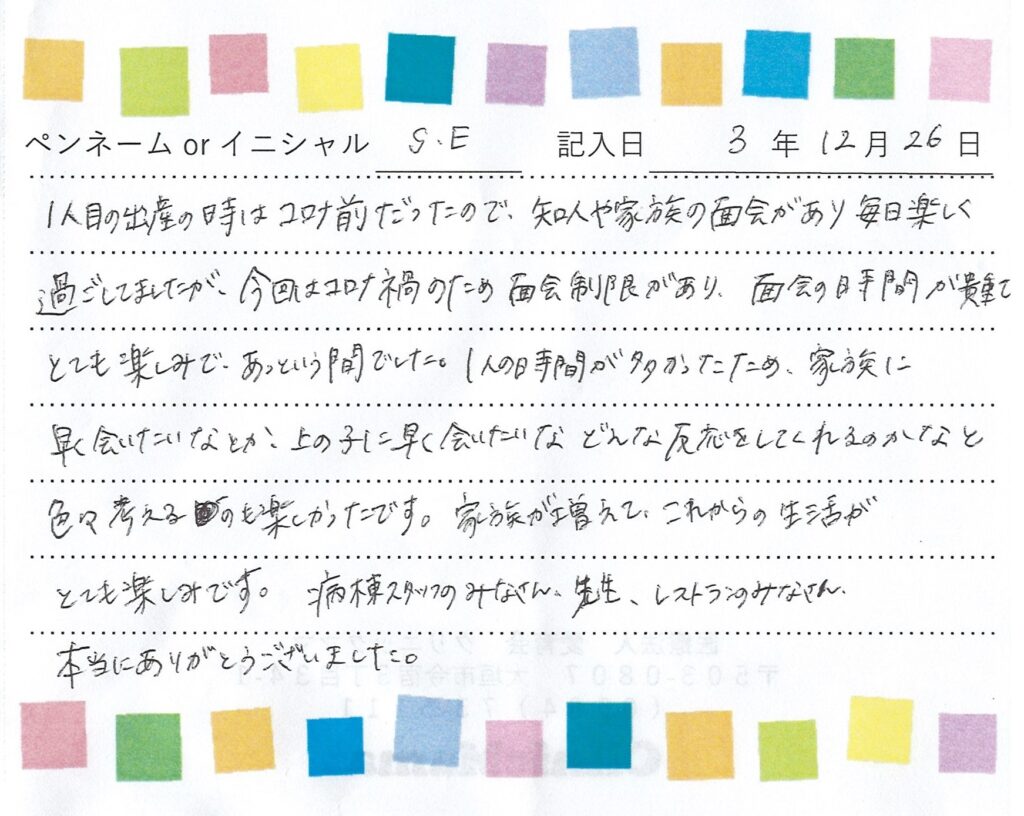 ペンネーム or イニシャル S.E 記入日 3 年 12 月 26 日
1人目の出産の時はコロナ前だったので、知人や家族の面会があり毎日楽しく
過ごしてましたが、今回はコロナ禍のため面会制限があり、面会の時間が貴重で
とても楽しみで、あっという間でした。1人の時間が多かったため、家族に
早く会いたいなとか、上の子に早く会いたいな どんな反応をしてくれるのかなと
色々考えるのも楽しかったです。家族が増えて、これからの生活が
とても楽しみです。病棟スタッフのみなさん、先生、レストランのみなさん、
本当にありがとうございました。